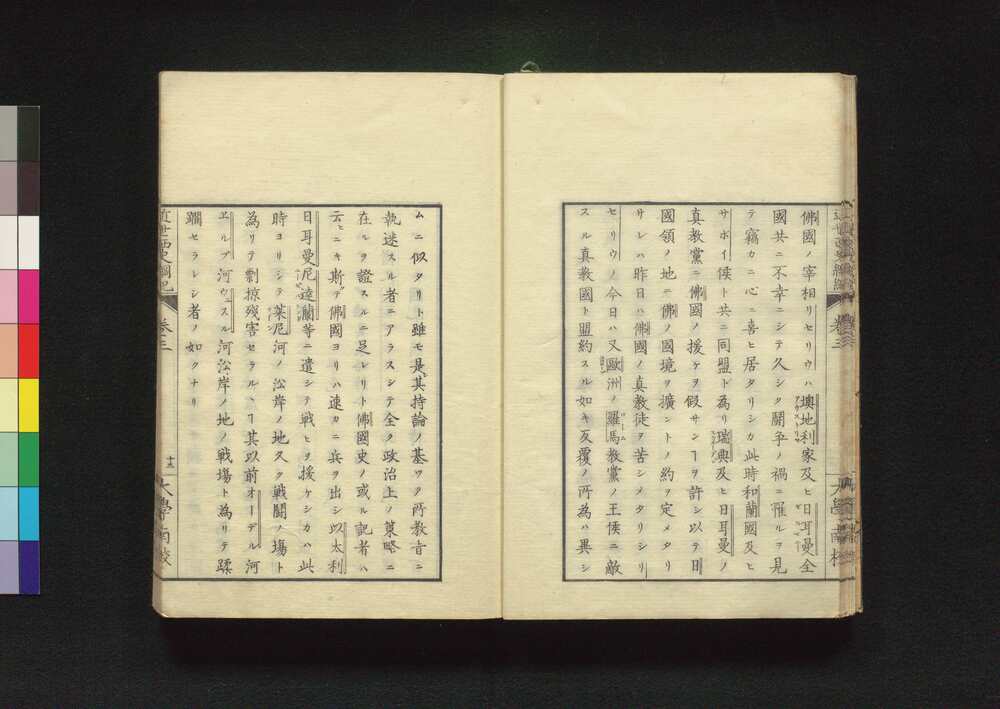 佛國ノ宰相リセリウハ墺地利家及ヒ日耳曼全
國共ニ不幸ニシテ久シク鬪爭ノ禍ニ罹ルヲ見
テ竊カニ心ニ喜ヒ居タリシカ此時和蘭國及ヒ
サボイ侯ト共ニ同盟ト為リ瑞典及ヒ日耳曼ノ
真教黨ニ佛國ノ援ケヲ假サンヿヲ許シ以テ日
國領ノ地ニ佛ノ國境ヲ擴ントノ約ヲ定メタリ
サレハ昨日ハ佛國ノ真教徒ヲ苦シメタリシリ
セリウノ今日ハ又歐洲ノ羅馬教黨ノ王侯ニ敵
スル真教國ト盟約スル如キ反覆ノ所為ハ異シ
ムニ似タリト雖モ是其持論ノ基ツク所教旨ニ
執迷スル者ニアラスシテ全ク政治上ノ策略ニ
在ルヲ證スルニ足レリト佛國史ノ或ル記者ハ
云ヒニキ斯テ佛國ヨリハ速カニ兵ヲ出シ以太利
日耳曼尼達蘭等ニ遣シテ戰ヒヲ援ケシカハ此
時ヨリシテ萊尼河ノ㳂岸ノ地久ク戰鬪ノ塲ト
為リテ剽掠殘害セラルヽヿ其以前オーデル河
ヱルブ河ウェスル河㳂岸ノ地ノ戰塲ト為リテ蹂
躙セラレシ者ノ如クナリ
近世西史綱紀
卷三
十三
大學南校